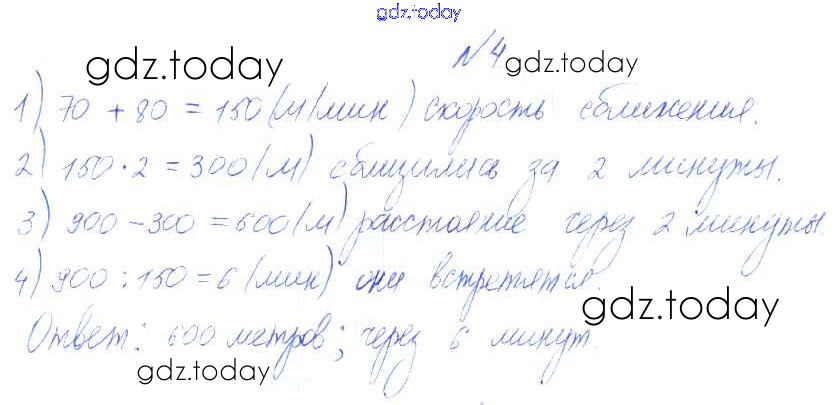 gdz.today
№4
gdz.today
gdz.today
1) 70 + 80 = 150 (м/мин) скорость сближения.
2) 150 · 2 = 300 (м) сблизились за 2 минуты.
3) 900 - 300 = 600 (м) расстояние через 2 минуты.
4) 900 : 150 = 6 (мин) они встретятся.
gdz.today
Ответ: 600 метров; через 6 минут.
gdz.today